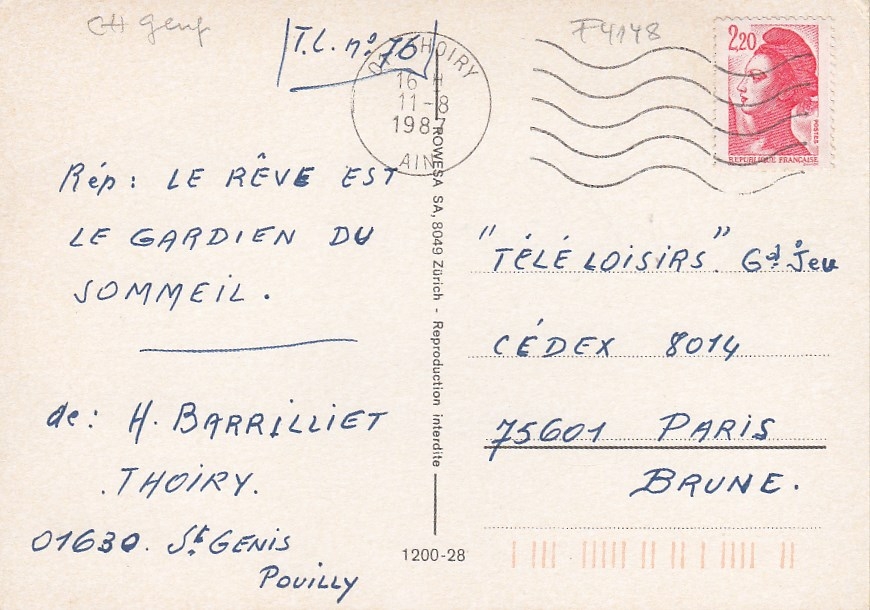 CH Genf
F4148
T.L. nº 76
THOIRY
16 H
11-8
1987
AIN
2,20
POSTES
REPUBLIQUE FRANCAISE
Rép: LE RÊVE EST
LE GARDIEN DU
SOMMEIL.
de: H. BARRILLIET
.THOIRY.
01630. St GENIS
POUILLY
ROWESA SA, 8049 Zürich - Reproduction interdite
1200-28
"TÉLÉ LOISIRS" Gd Jeu
CÉDEX 8014
75601 PARIS
BRUNE.